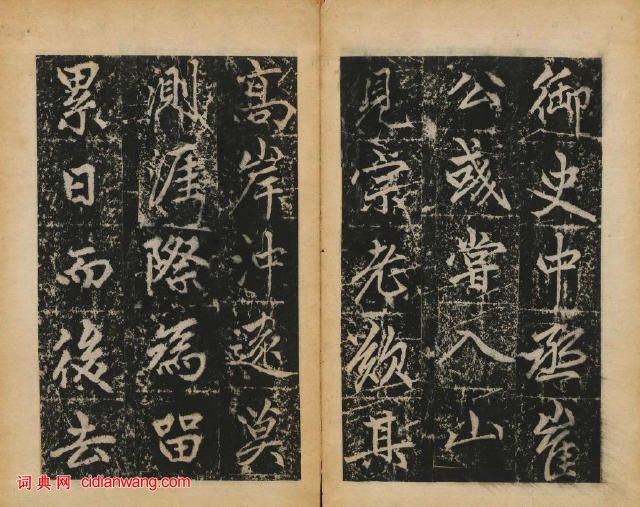 御史中丞崔
公或嘗入山
見宗老欽其
高岸沖遠莫
測涯際為留
累日而後去
词典网 cidianwang.com